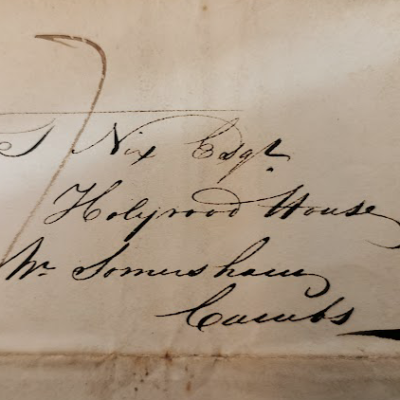 S Nix Esqr
Holyrood House
Nr Somersham
Cambs